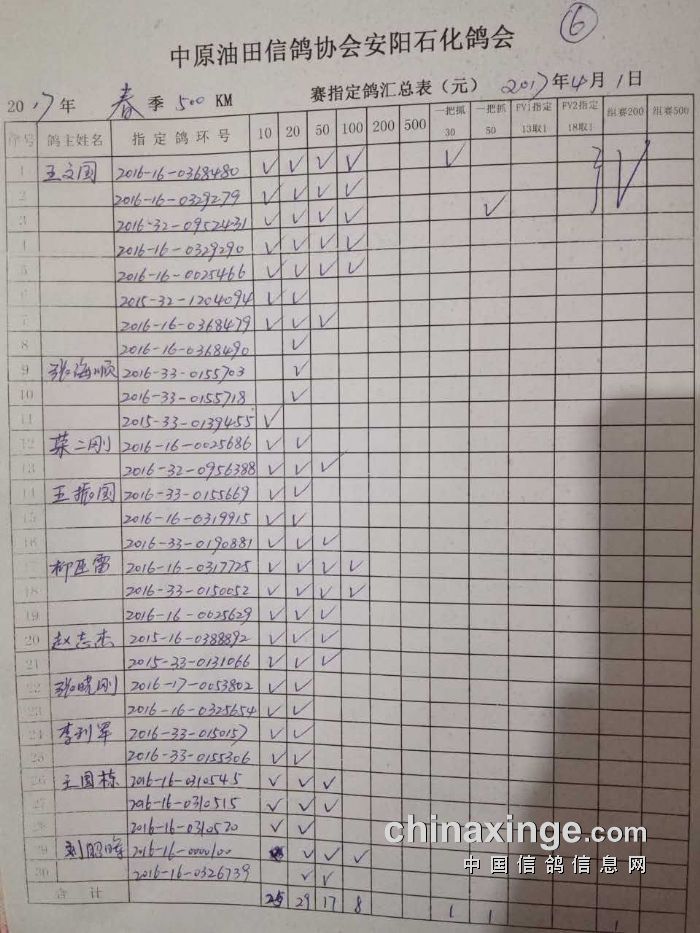 ⑥
中原油田信鸽协会安阳石化鸽会
2017年 春季500KM 赛指定鸽汇总表(元) 2017年4月1日
序号 鸽主姓名 指定鸽环号 10 20 50 100 200 500 一把抓30 一把抓50 FV1指定13取1 FV2指定18取1 组赛200 组赛500
1 王文国 2016-16-0368480 √ √ √ √ √ √
2 2016-16-0329279 √ √ √ √
3 2016-32-0952431 √ √ √ √ √
4 2016-16-0329290 √ √ √ √
5 2016-16-0025466 √ √ √ √
6 2015-32-1204094 √ √
7 2016-16-0368479 √ √ √
8 2016-16-0368490 √
9 张海顺 2016-33-0155703 √
10 2016-33-0155718 √
11 2015-33-0139455 √
12 荣二刚 2016-16-0025686 √ √
13 2016-32-0956388 √ √ √
14 王振国 2016-33-0155669 √ √
15 2016-16-0319915 √ √
16 2016-33-0190881 √ √ √
17 柳亚雷 2016-16-0317725 √ √ √ √
18 2016-33-0150052 √ √ √ √
19 2016-16-0025629 √ √ √
20 赵志杰 2015-16-0388892 √ √ √
21 2015-33-0131066 √ √ √
22 张晓刚 2016-17-0053802 √ √
23 2016-16-0325654 √ √
24 李利军 2016-33-0150157 √ √
25 2016-33-0155306 √ √
26 王国栋 2016-16-0310545 √ √ √
27 2016-16-0310515 √ √ √
28 2016-16-0310520 √ √
29 刘昭晖 2016-16-0000100 √ √ √
30 2016-16-0326739 √ √
合计 25 29 17 8 1 1 1
chinaxinge.com
中国信鸽信息网